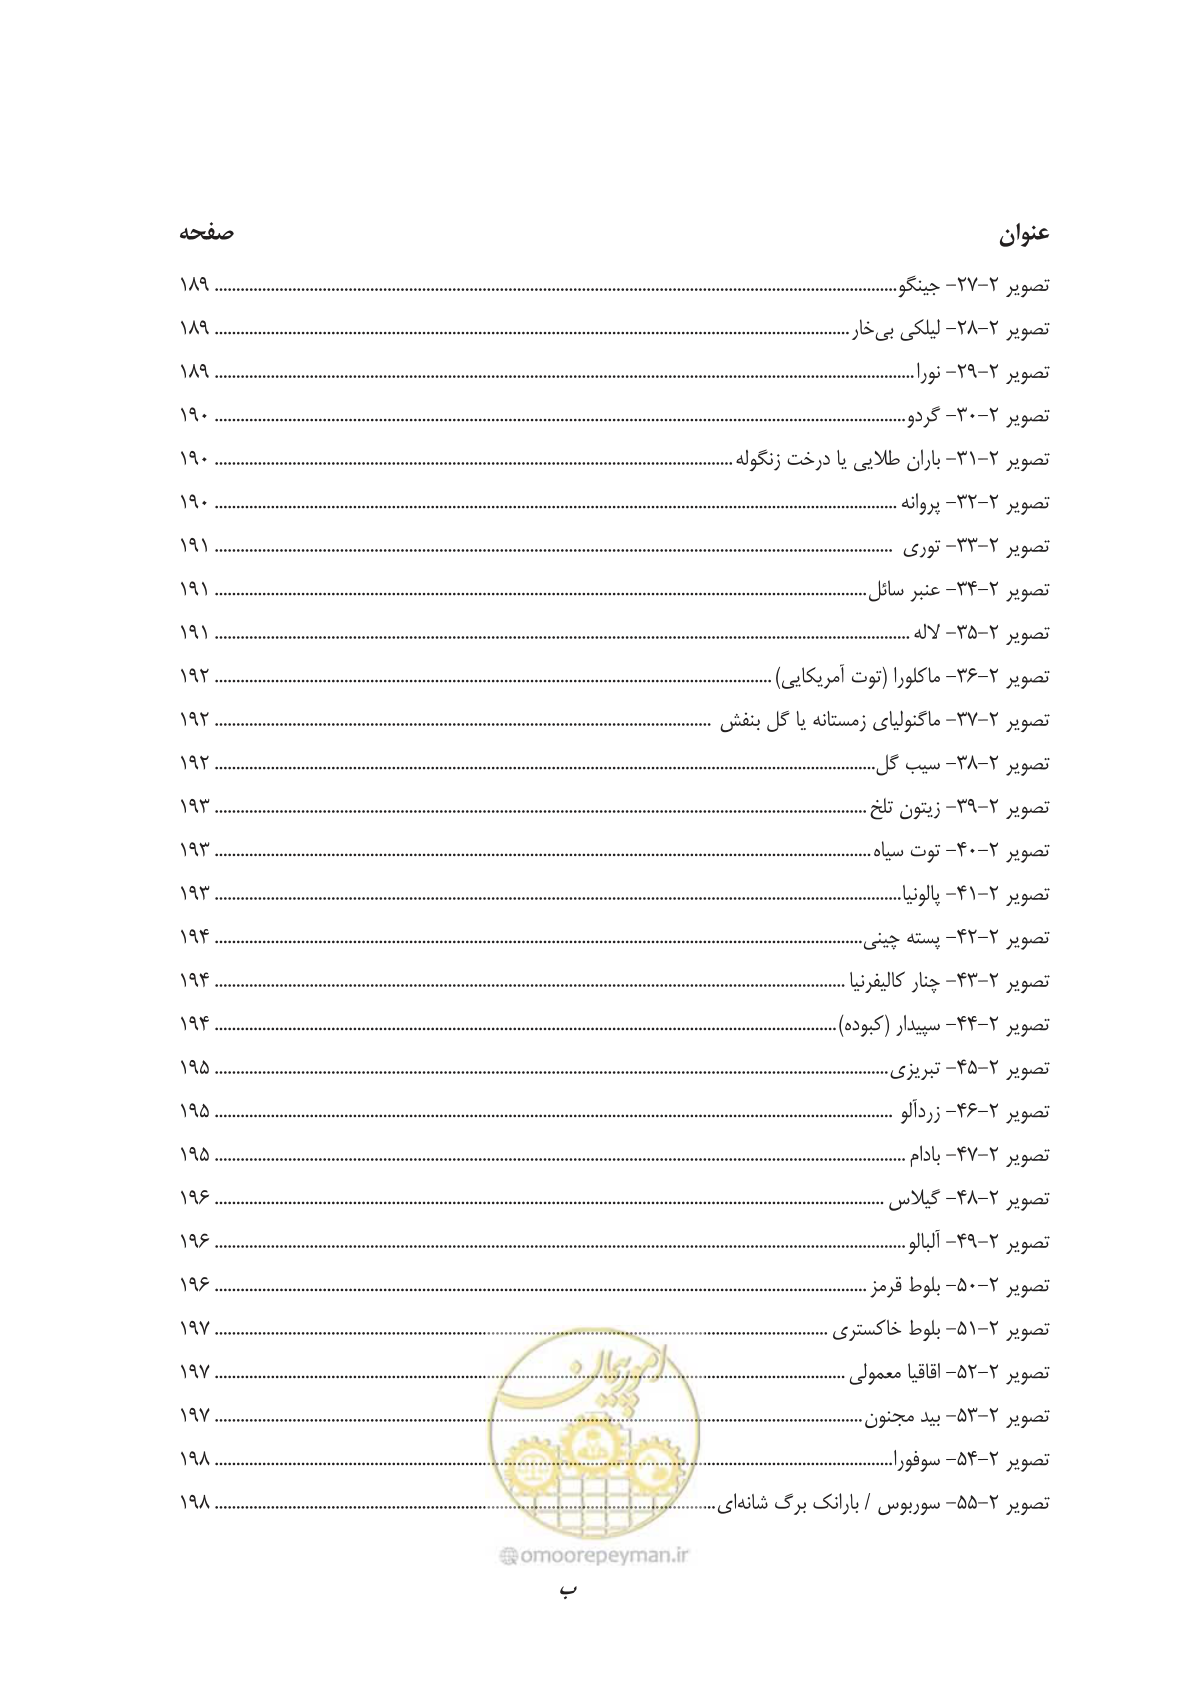 عنوان صفحه
تصویر ۲-۲۷- جینگو ۱۸۹
تصویر ۲-۲۸- لیلکی بی‌خار ۱۸۹
تصویر ۲-۲۹- نورا ۱۸۹
تصویر ۲-۳۰- گردو ۱۹۰
تصویر ۲-۳۱- باران طلایی یا درخت زنگوله ۱۹۰
تصویر ۲-۳۲- پروانه ۱۹۰
تصویر ۲-۳۳- توری ۱۹۱
تصویر ۲-۳۴- عنبر سائل ۱۹۱
تصویر ۲-۳۵- لاله ۱۹۱
تصویر ۲-۳۶- ماکلورا (توت آمریکایی) ۱۹۲
تصویر ۲-۳۷- ماگنولیای زمستانه یا گل بنفش ۱۹۲
تصویر ۲-۳۸- سیب گل ۱۹۲
تصویر ۲-۳۹- زیتون تلخ ۱۹۳
تصویر ۲-۴۰- توت سیاه ۱۹۳
تصویر ۲-۴۱- پالونیا ۱۹۳
تصویر ۲-۴۲- پسته چینی ۱۹۴
تصویر ۲-۴۳- چنار کالیفرنیا ۱۹۴
تصویر ۲-۴۴- سپیدار (کبوده) ۱۹۴
تصویر ۲-۴۵- تبریزی ۱۹۵
تصویر ۲-۴۶- زردآلو ۱۹۵
تصویر ۲-۴۷- بادام ۱۹۵
تصویر ۲-۴۸- گیلاس ۱۹۶
تصویر ۲-۴۹- آلبالو ۱۹۶
تصویر ۲-۵۰- بلوط قرمز ۱۹۶
تصویر ۲-۵۱- بلوط خاکستری ۱۹۷
تصویر ۲-۵۲- اقاقیا معمولی ۱۹۷
تصویر ۲-۵۳- بید مجنون ۱۹۷
تصویر ۲-۵۴- سوفورا ۱۹۸
تصویر ۲-۵۵- سوربوس / بارانک برگ شانه‌ای ۱۹۸
امور پیمان
omoorepeyman.ir
ب